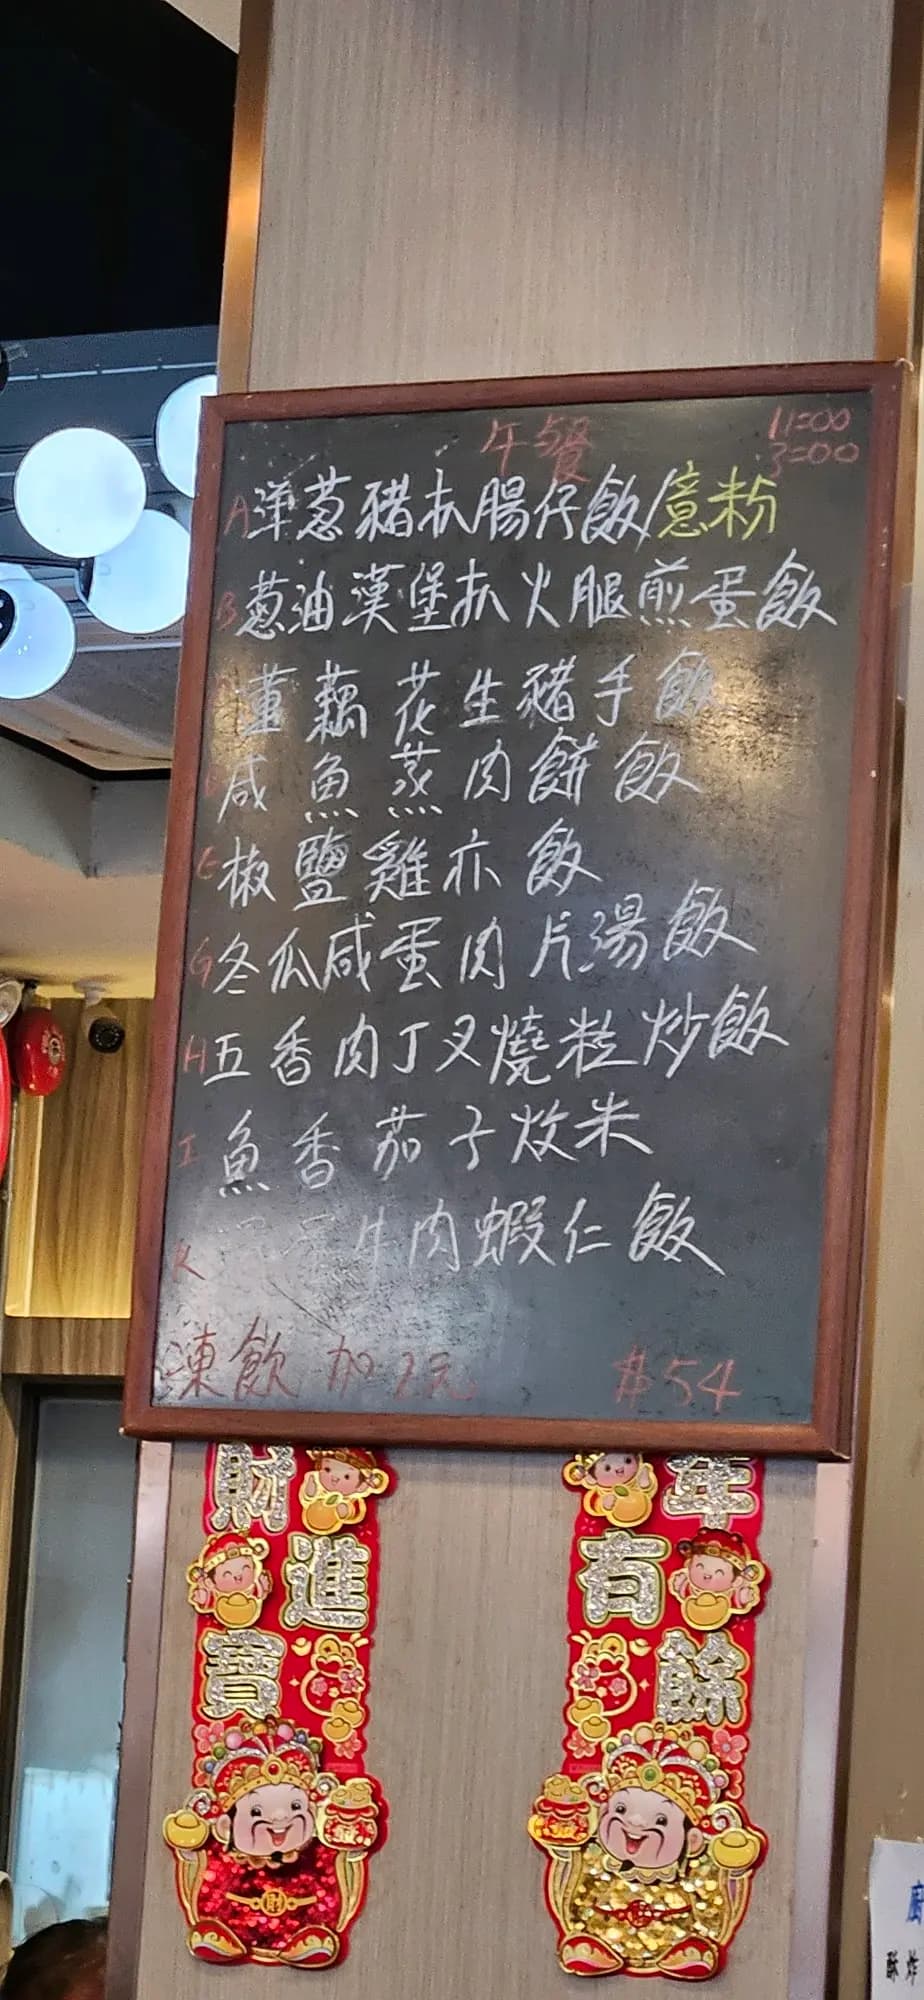 午餐
11:00
3:00
A 洋葱豬扒腸仔飯/意粉
B 葱油漢堡扒火腿煎蛋飯
蓮藕花生豬手飯
咸魚蒸肉餅飯
E 椒鹽雞亦飯
G 冬瓜咸蛋肉片湯飯
H 五香肉丁叉燒粒炒飯
I 魚香茄子炆米
K 牛肉蝦仁飯
凍飲加2元
$54
財進寶
年有餘
酥炸